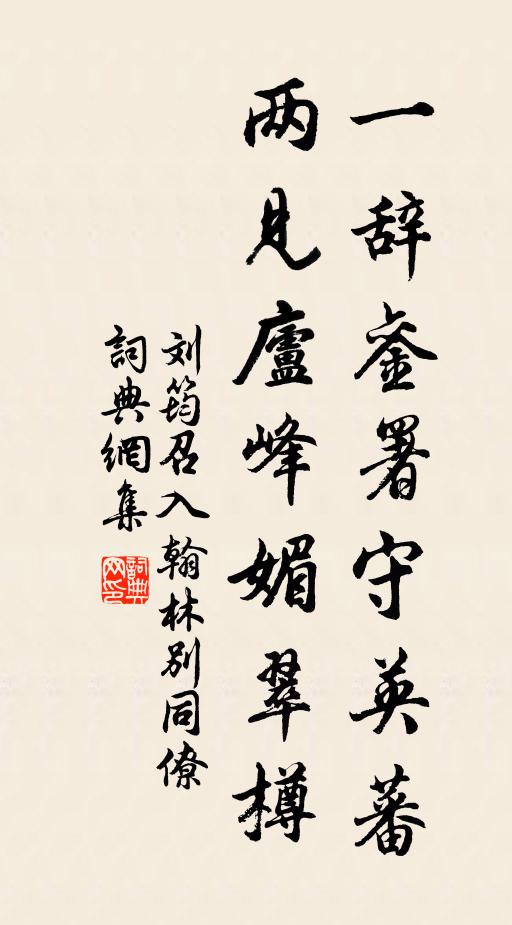 一辞銮署守英蕃
两見廬峰媚翠樽
刘筠召入翰林别同僚
詞典網集
詞典网印